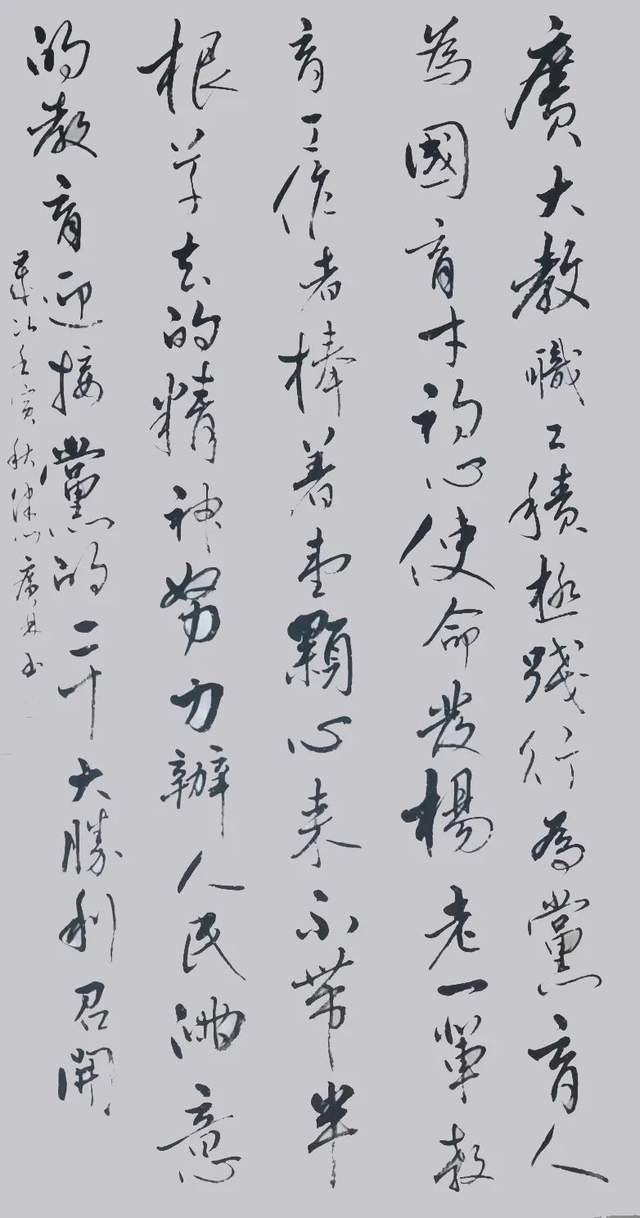 廣大教職工積極踐行為黨育人
為國育才初心使命發楊老一輩教
育工作者棒着壹顆心来不帶半
根草去的精神努力辦人民滿意
的教育迎接黨的二十大勝利召開
歲次壬寅秋书